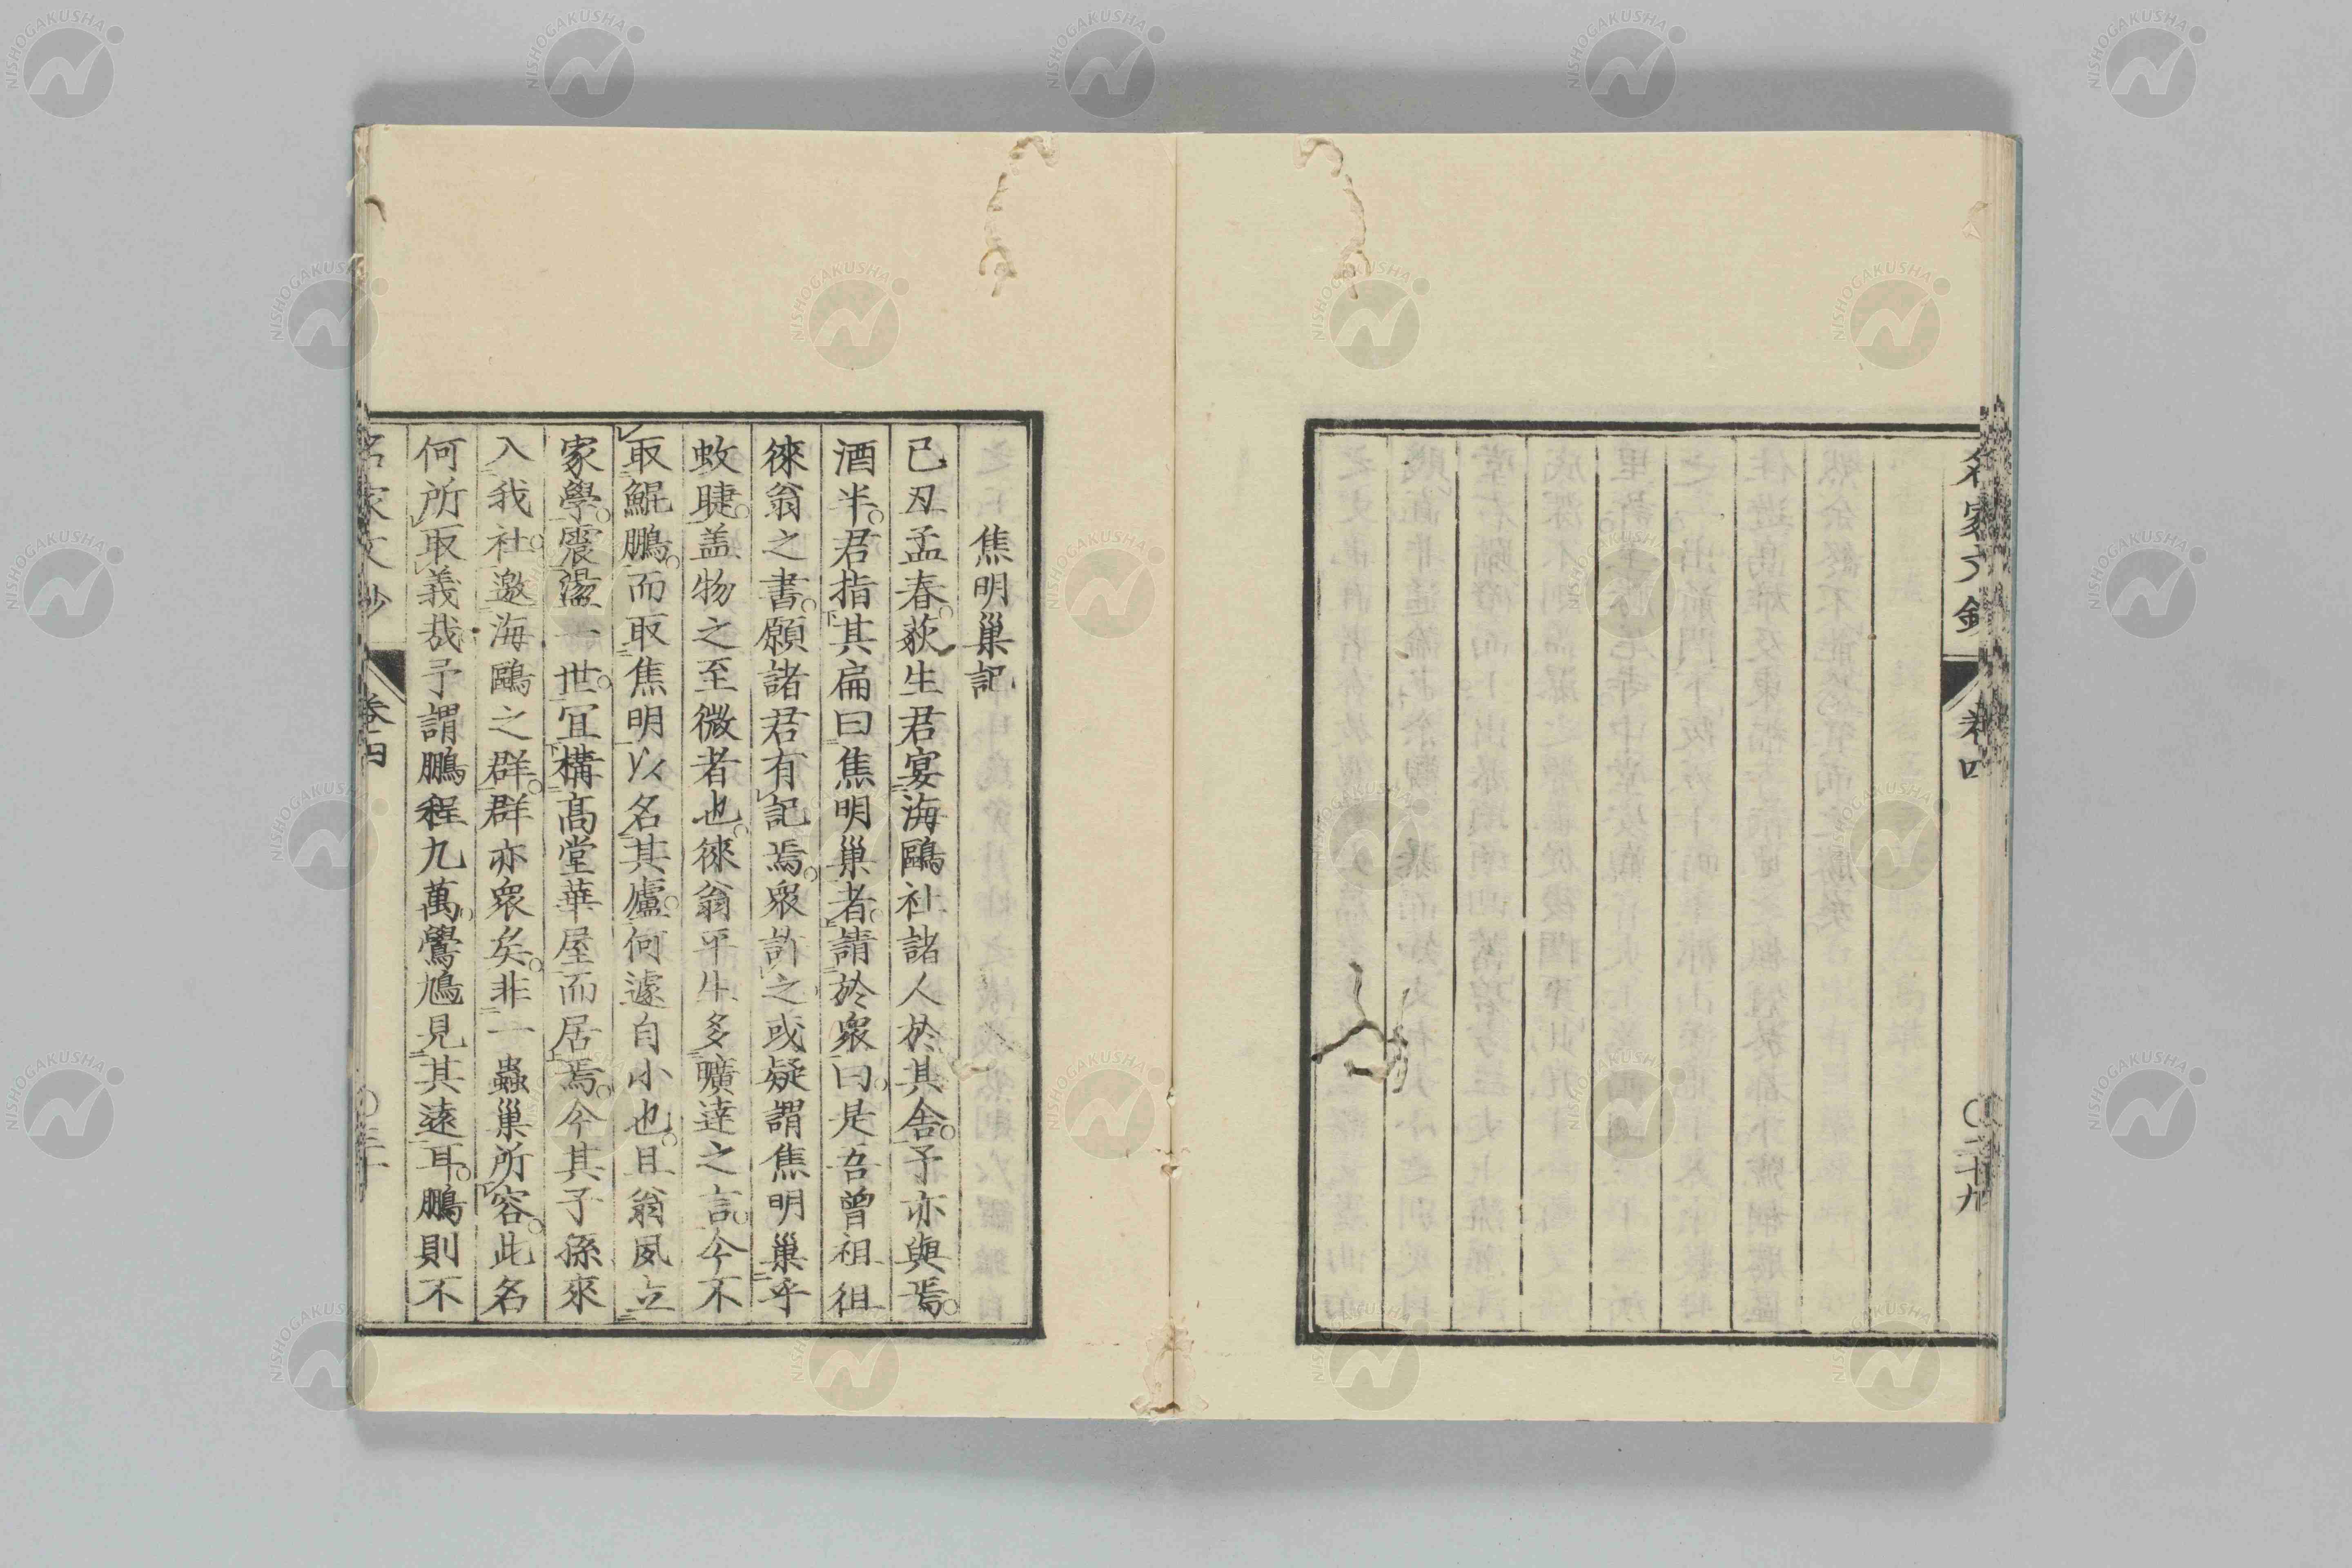 焦明巢記
己丑孟春荻生君宴海鷗社諸人於其舎予亦與焉
酒半君指其扁曰焦明巢者請於衆曰是吾曾祖徂
徠翁之書願諸君有記焉衆許之或疑謂焦明巢乎
蚊睫盖物之至微者也徠翁平生多曠達之言今不
取鯤鵬而取焦明以名其廬何遽自小也且翁夙立
家學震盪一世宜構髙堂華屋而居焉今其子孫來
入我社邀海鷗之群群亦衆矣非一蟲巢所容此名
何所取義哉予謂鵬程九萬鷽鳩見其遠耳鵬則不
名家文鈔
卷四
〇三十
名家文鈔
卷四
〇二十九
NISHOGAKUSHA